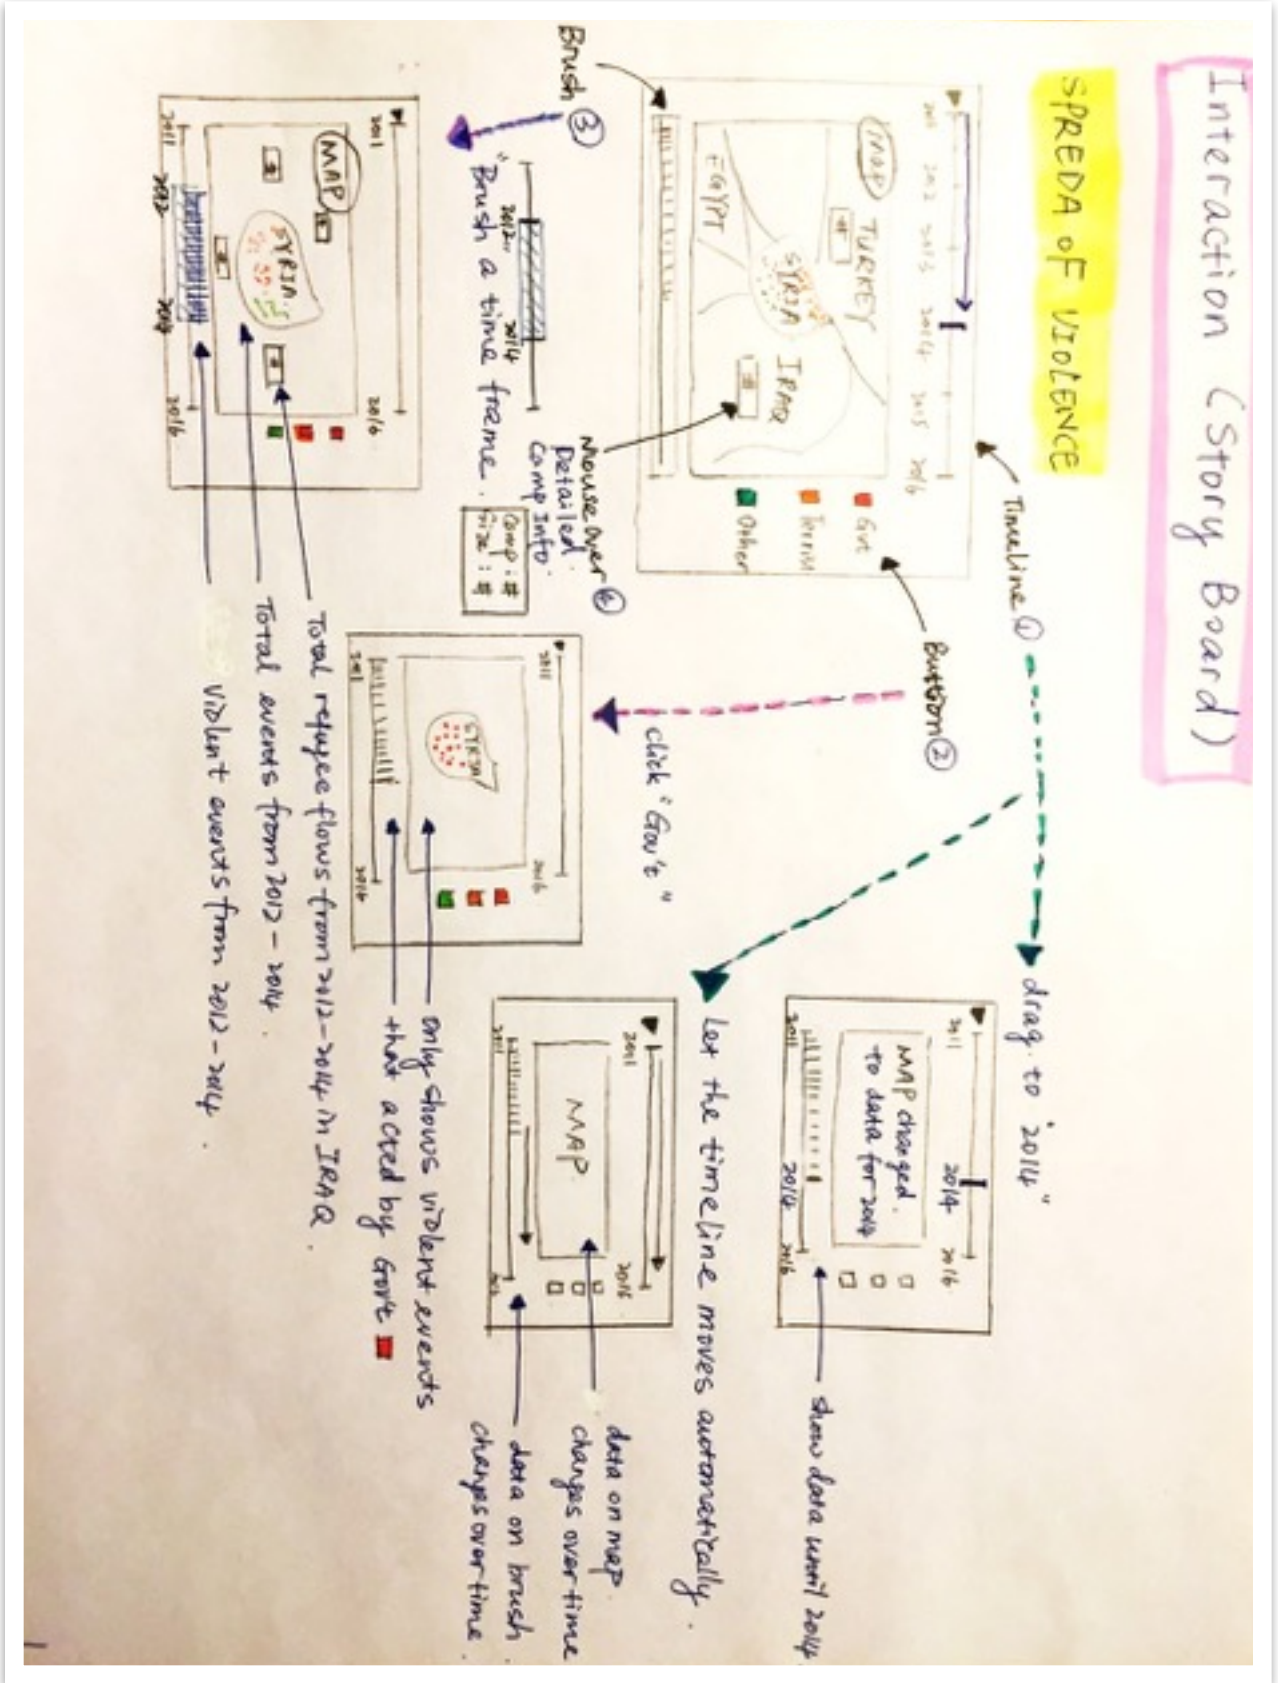 Interaction (Story Board)
SPREDA OF VIOLENCE
Timeline ①
drag to "2014"
2011 2012 2013 2014 2015 2016
MAP
TURKEY
SYRIA
IRAQ
EGYPT
#
#
Gvt
Other
Button ②
Brush ③
Mouse over ④
Detailed
Camp Info.
Camp : #
Size : #
2011 2014 2016
MAP changed
to data for 2014
2011 2014 2016
show data until 2014
Let the timeline moves automatically.
2011 2016
MAP
2011
data on map
changes over time
data on brush
changes over time.
click "Gov't"
2011 2016
SYRIA
2011 2016
only shows violent events
that acted by Gov't
2012 2014
"Brush a time frame.
2011 2016
MAP
SYRIA
2011 2012 2014 2016
Total refugee flows from 2012-2014 in IRAQ.
Total events from 2012-2014.
violent events from 2012-2014.